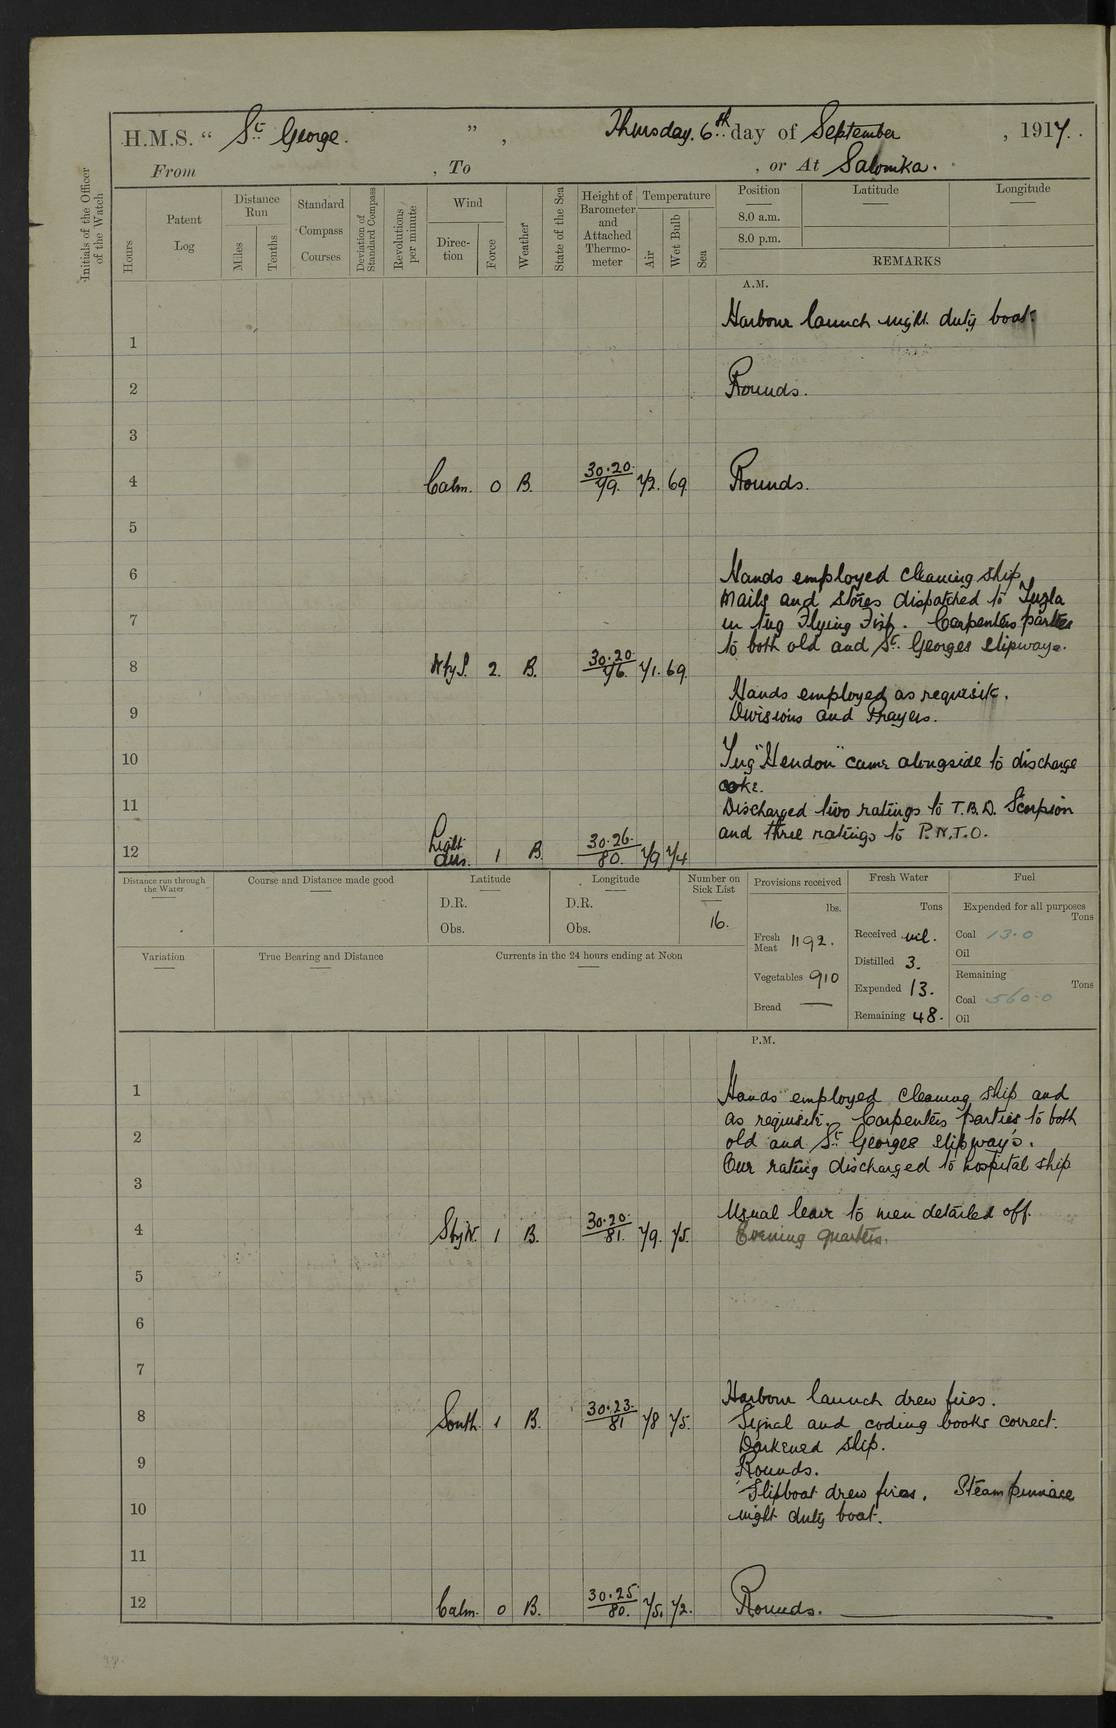 H.M.S. “ St. George. ” , Thursday. 6th day of September , 1917.
From , To , or At Salonika.
Initials of the Officer of the Watch
Hours
Patent Log
Distance Run
Miles
Tenths
Standard Compass Courses
Deviation of Standard Compass
Revolutions per minute
Wind
Direc-tion
Force
Weather
State of the Sea
Height of Barometer and Attached Thermo-meter
Temperature
Air
Wet Bulb
Sea
Position
8.0 a.m.
8.0 p.m.
Latitude
Longitude
REMARKS
A.M.
Harbour launch night duty boat.
1
2 Rounds.
3
4 Calm. 0 B. 30.20/79. 72. 69. Rounds.
5
6 Hands employed cleaning ship
Mails and stores dispatched to Tuzla
7 in tug Flying Fish. Carpenters parties
to both old and St. Georges slipways.
8 N by E. 2. B. 30.20/76. 71. 69.
Hands employed as requisite.
9 Divisions and Prayers.
10 Tug "Hendon" came alongside to discharge
coke.
11 Discharged two ratings to T.B.D. Scorpion
and three ratings to P.N.T.O.
12 Light airs. 1 B. 30.26./80. 79 74
Distance run through the Water
Course and Distance made good
Latitude
D.R.
Obs.
Longitude
D.R.
Obs.
Number on Sick List
16.
Provisions received
lbs.
Fresh Meat 1192.
Vegetables 910
Bread —
Fresh Water
Tons
Received nil.
Distilled 3.
Expended 13.
Remaining 48.
Fuel
Expended for all purposes
Tons
Coal 13.0
Oil
Remaining
Tons
Coal 560.0
Oil
Variation
True Bearing and Distance
Currents in the 24 hours ending at Noon
P.M.
1 Hands employed cleaning ship and
as requisite. Carpenters parties to both
2 old and St. Georges slipway's.
One rating discharged to hospital ship
3
Usual leave to men detailed off.
4 S by W. 1 B. 30.20./81. 79. 75. Evening quarters.
5
6
7
Harbour launch drew fires.
8 South. 1 B. 30.23./81 78 75. Signal and coding books correct.
Darkened ship.
9 Rounds.
Slipboat drew fires. Steam pinnace
10 night duty boat.
11
12 Calm. 0 B. 30.25/80. 75. 72. Rounds.